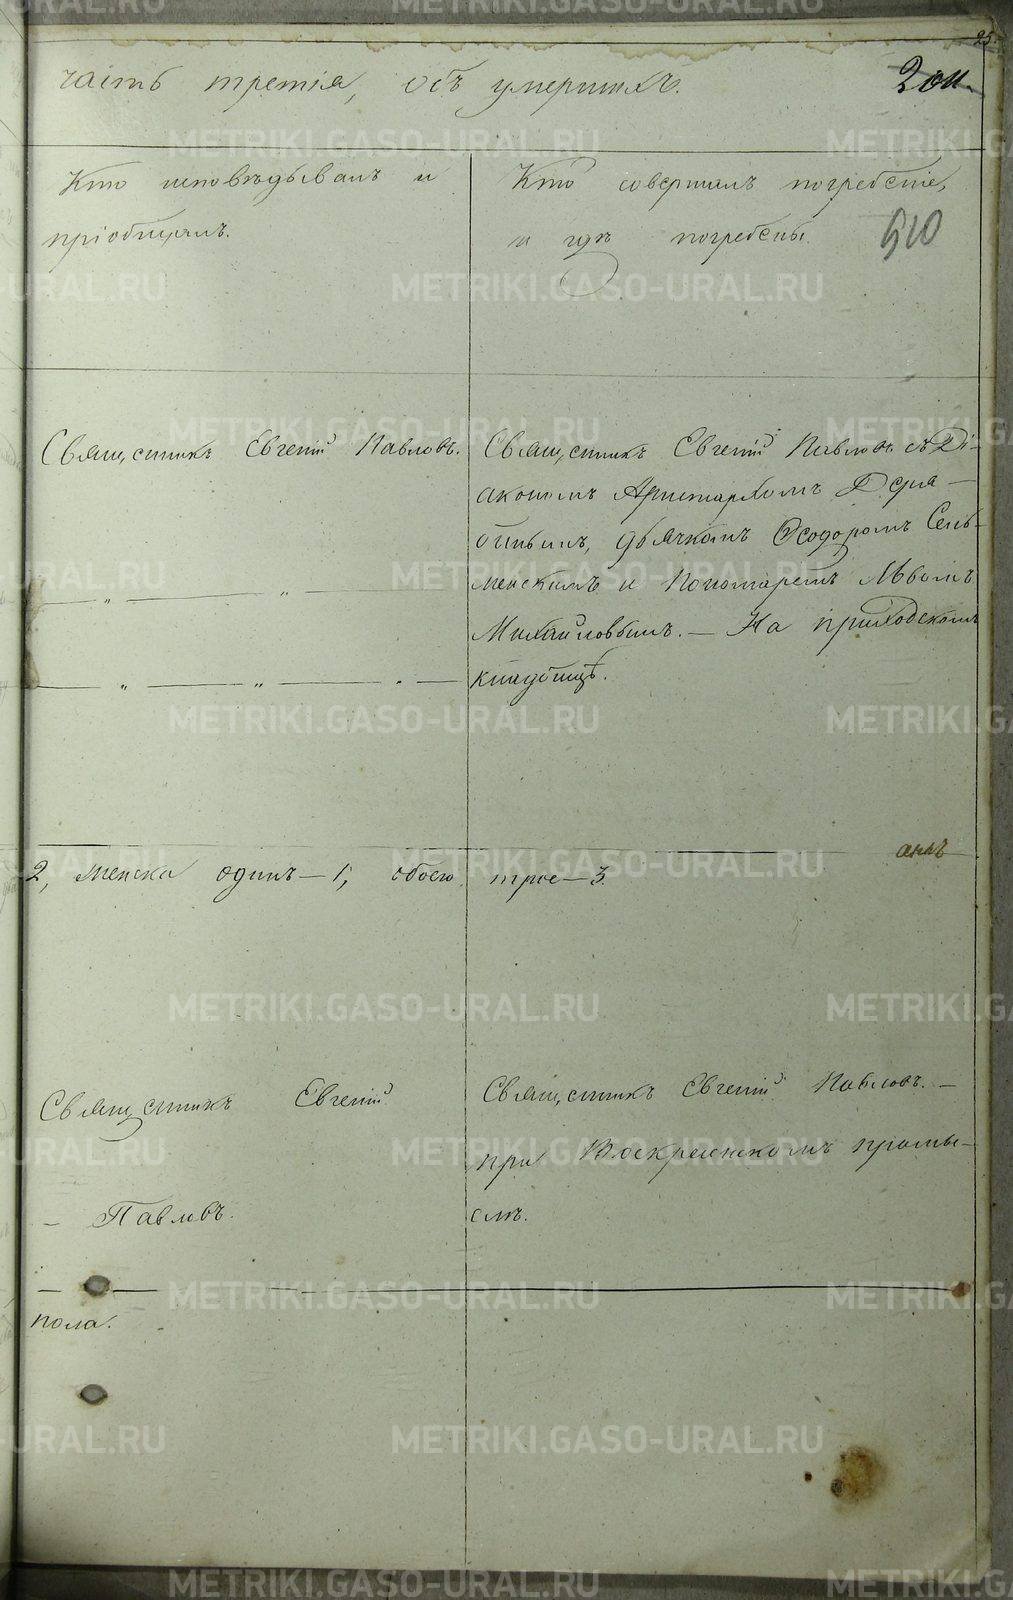 25.
часть третія, объ умершихъ.
Кто исповѣдывалъ и
пріобщалъ.
Кто совершалъ погребеніе,
и гдѣ погребены.
510
Священникъ Евгеній Павловъ.
Священникъ Евгеній Павловъ съ Ді-
акономъ Аристархомъ Деря-
бинымъ, дьячкомъ Ѳеодоромъ
менскимъ и Пономаремъ Львомъ
Михайловымъ. — На приходскомъ
кладбищѣ.
2, женска одинъ — 1, обоего трое — 3.
Священникъ Евгеній
— Павловъ.
Священникъ Евгеній Павловъ. —
при Воскресенскомъ промы-
слѣ.
пола.
METRIKI.GASO-URAL.RU